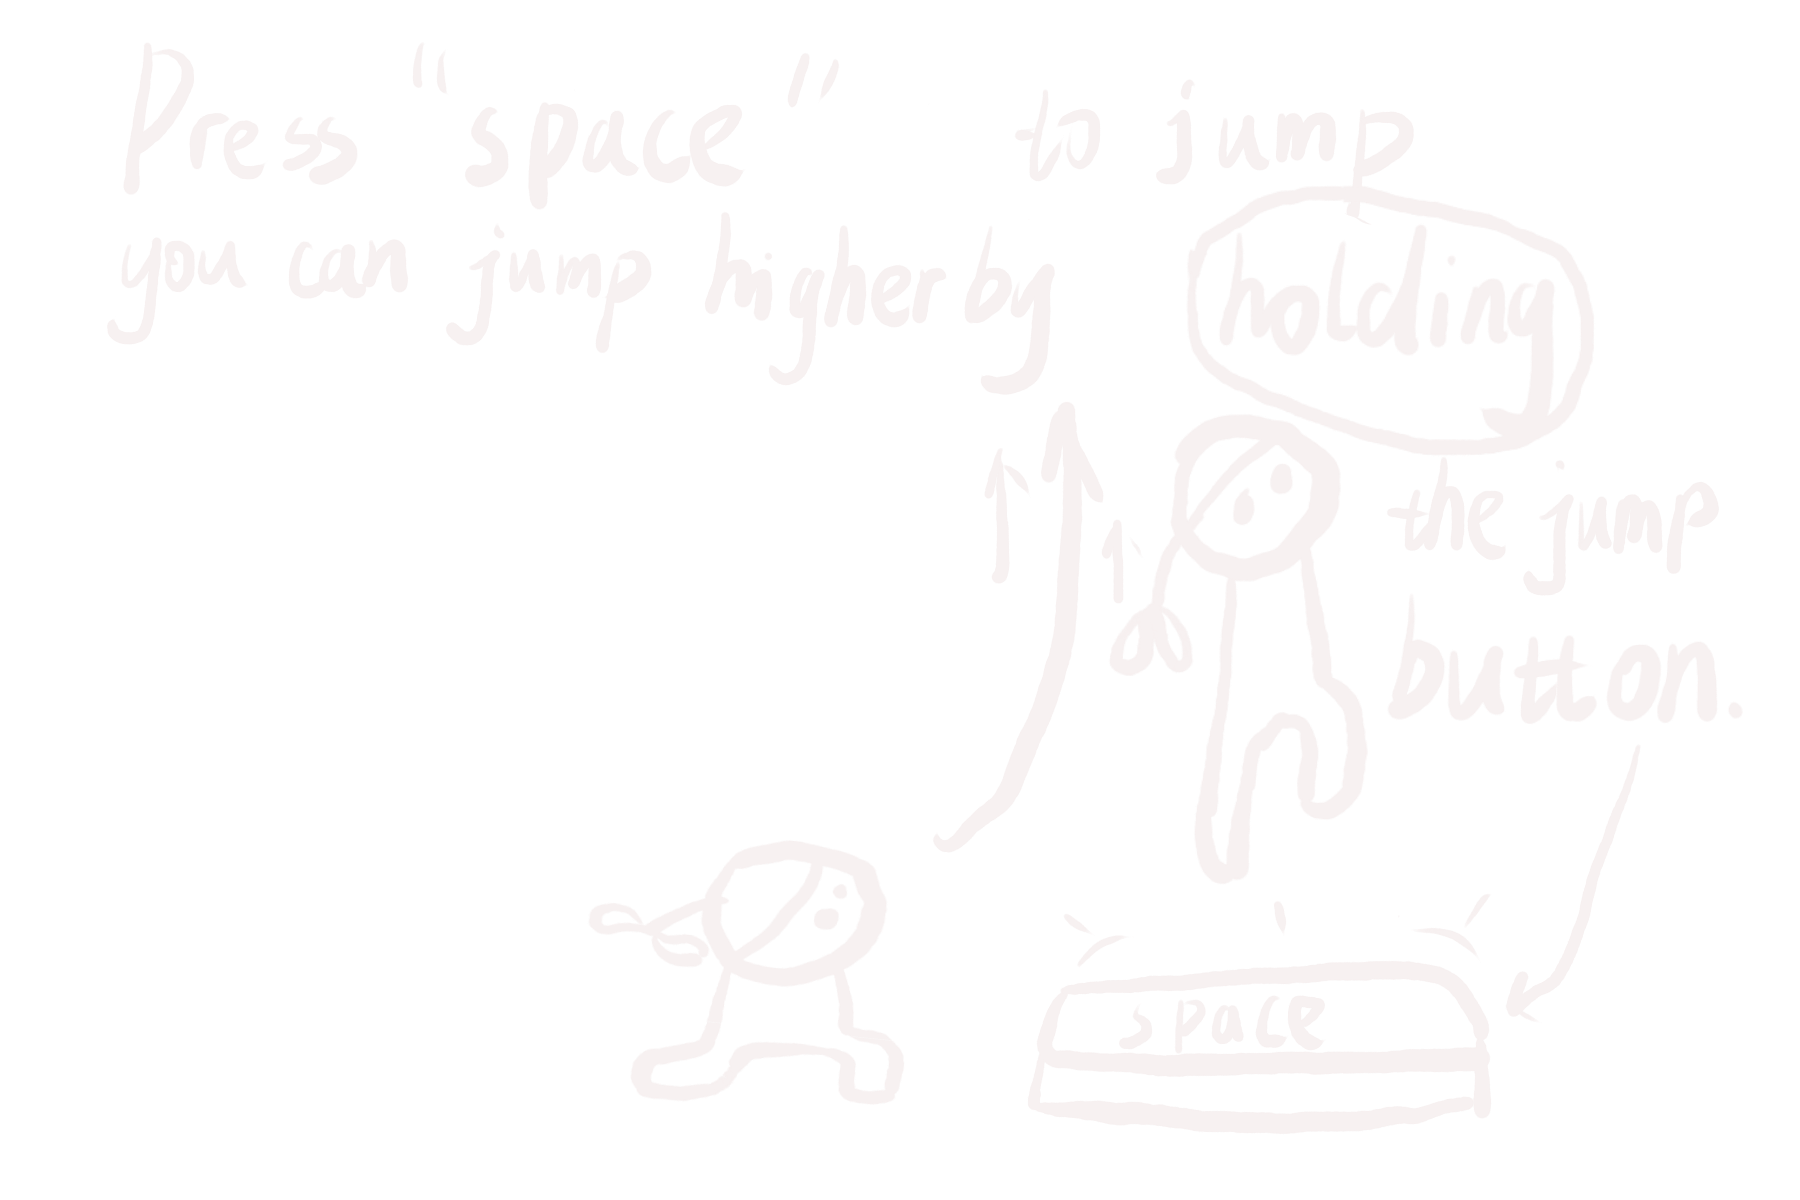 Press "space" to jump
you can jump higher by holding
the jump
button.
space